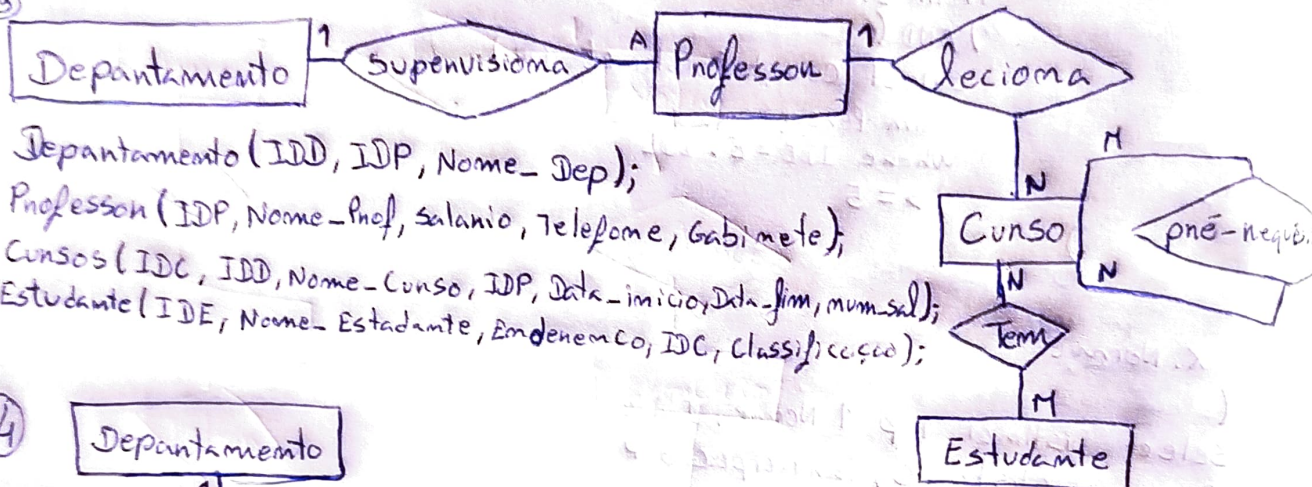 Departamento 1 Supervisiona 1 Professor 1 leciona
Departamento (IDD, IDP, Nome_Dep);
Professor (IDP, Nome_Prof, salario, Telefone, Gabinete);
Cursos (IDC, IDD, Nome_Curso, IDP, Data_inicio, Data_fim, num_sal);
Estudante (IDE, Nome_Estadante, Endereneco, IDC, Classificação);
N
M
Curso
pré-requi.
N
N
Tem
M
Estudante
4
Departamento
1